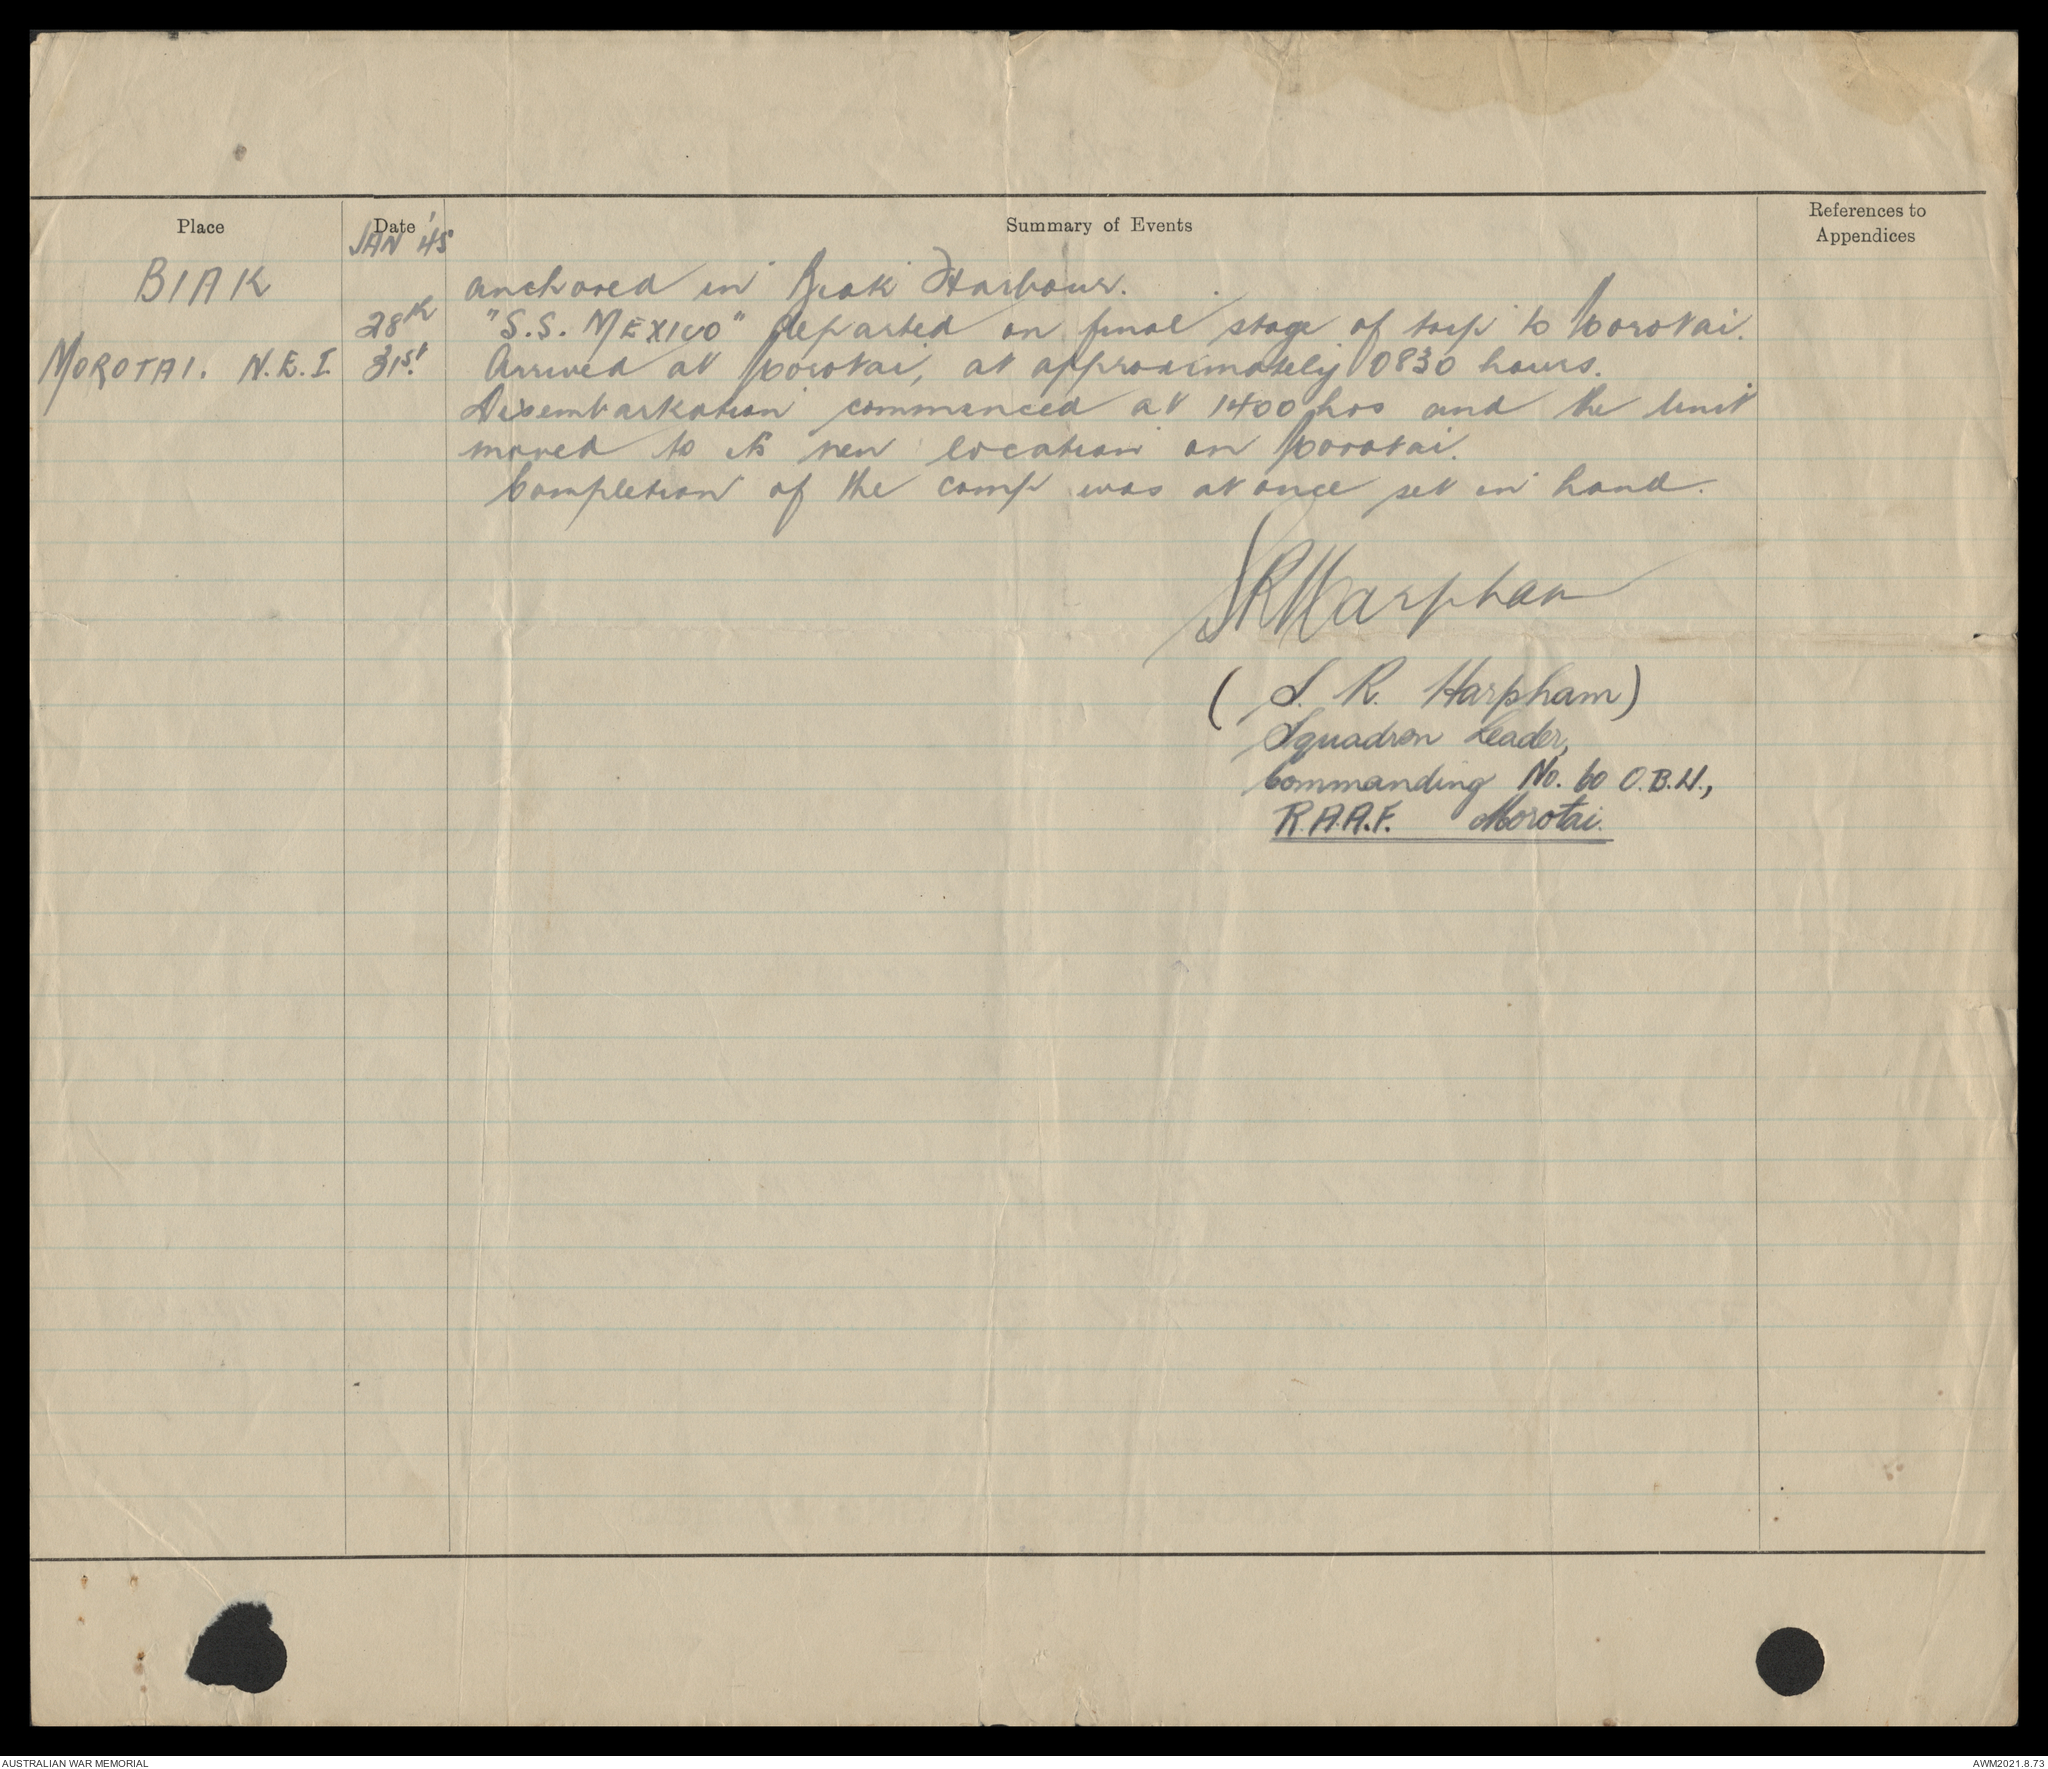 Place Date Summary of Events References to Appendices
JAN '45
BIAK anchored in Biak Harbour.
28th "S.S. MEXICO" departed on final stage of trip to Morotai.
MOROTAI. N.E.I. 31st. Arrived at Morotai, at approximately 0830 hours.
Disembarkation commenced at 1400 hrs and the Unit
moved to its new location on Morotai.
Completion of the camp was at once set in hand.
SRHarpham
(S. R. Harpham)
Squadron Leader,
Commanding No. 60 O.B.U.,
R.A.A.F. Morotai.
AUSTRALIAN WAR MEMORIAL AWM2021.8.73